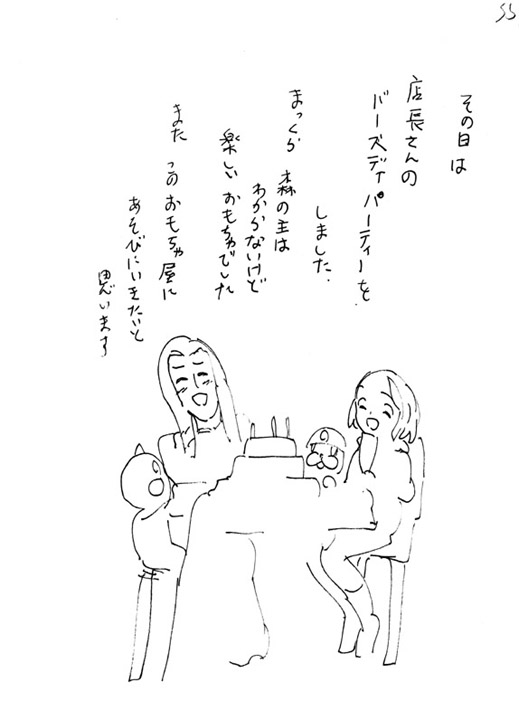 55
その日は
店長さんの
バーズディパーティーを
しました.
まっくら 森の主は
わからないけど
楽しい おもちゃでした
また このおもちゃ屋に
あそびにいきたいと
思います